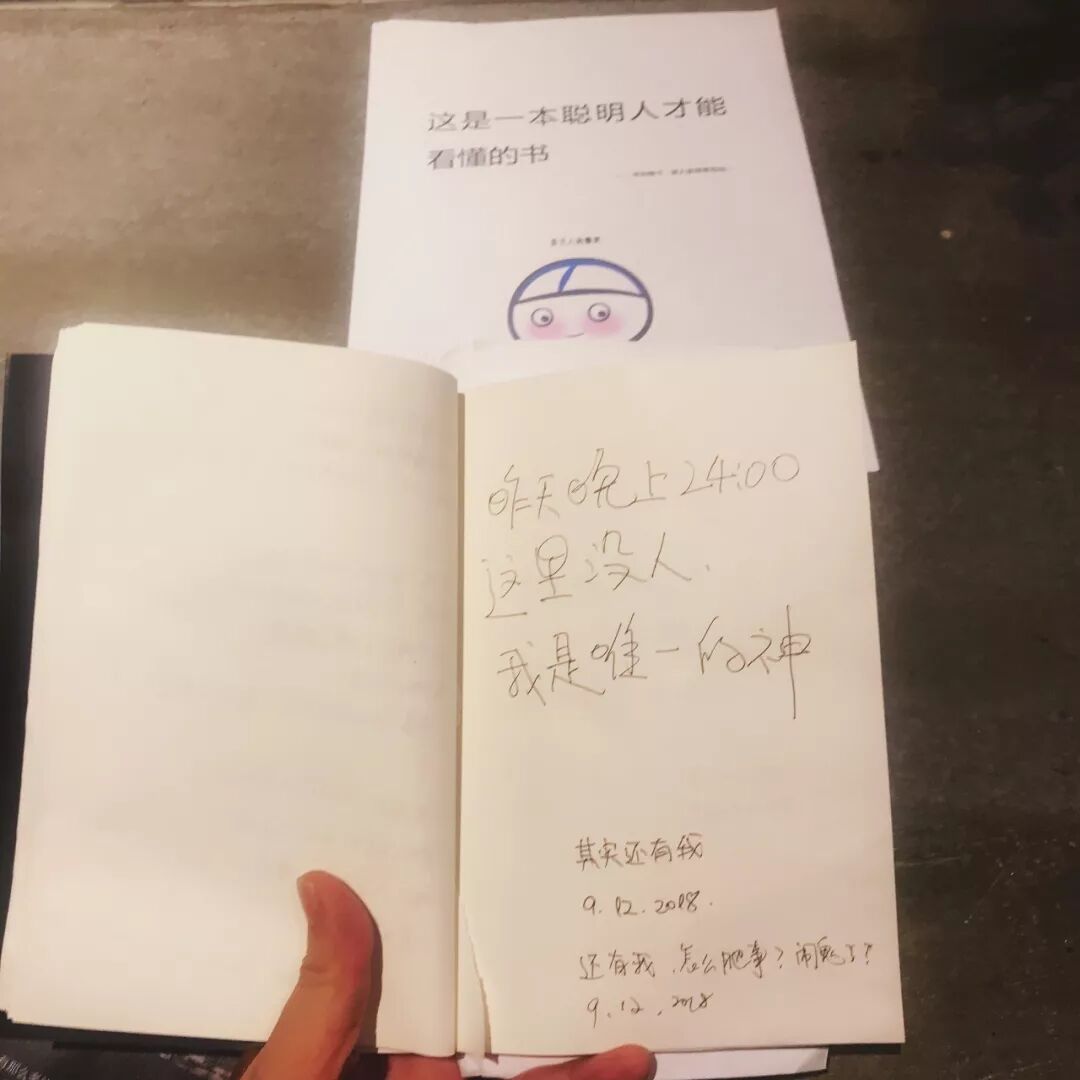 这是一本聪明人才能
看懂的书
昨天晚上24:00
这里没人.
我是唯一的神
其实还有我
9.12.2018.
还有我.怎么肥事?闹鬼了?
9.12.2018